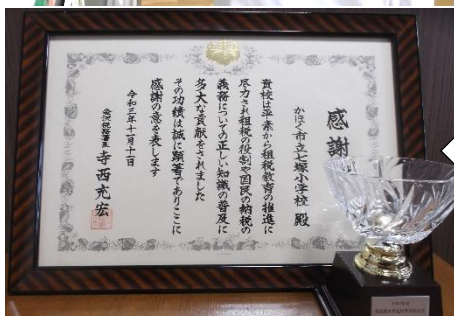 感謝
かほく市立七塚小学校 殿
貴校は平素から租税教育の推進に
尽力され租税の役割や国民の納税の
義務についての正しい知識の普及に
多大な貢献をされました
その功績は誠に顕著でありここに
感謝の意を表します
令和三年十一月十一日
金沢税務署長 寺西充宏